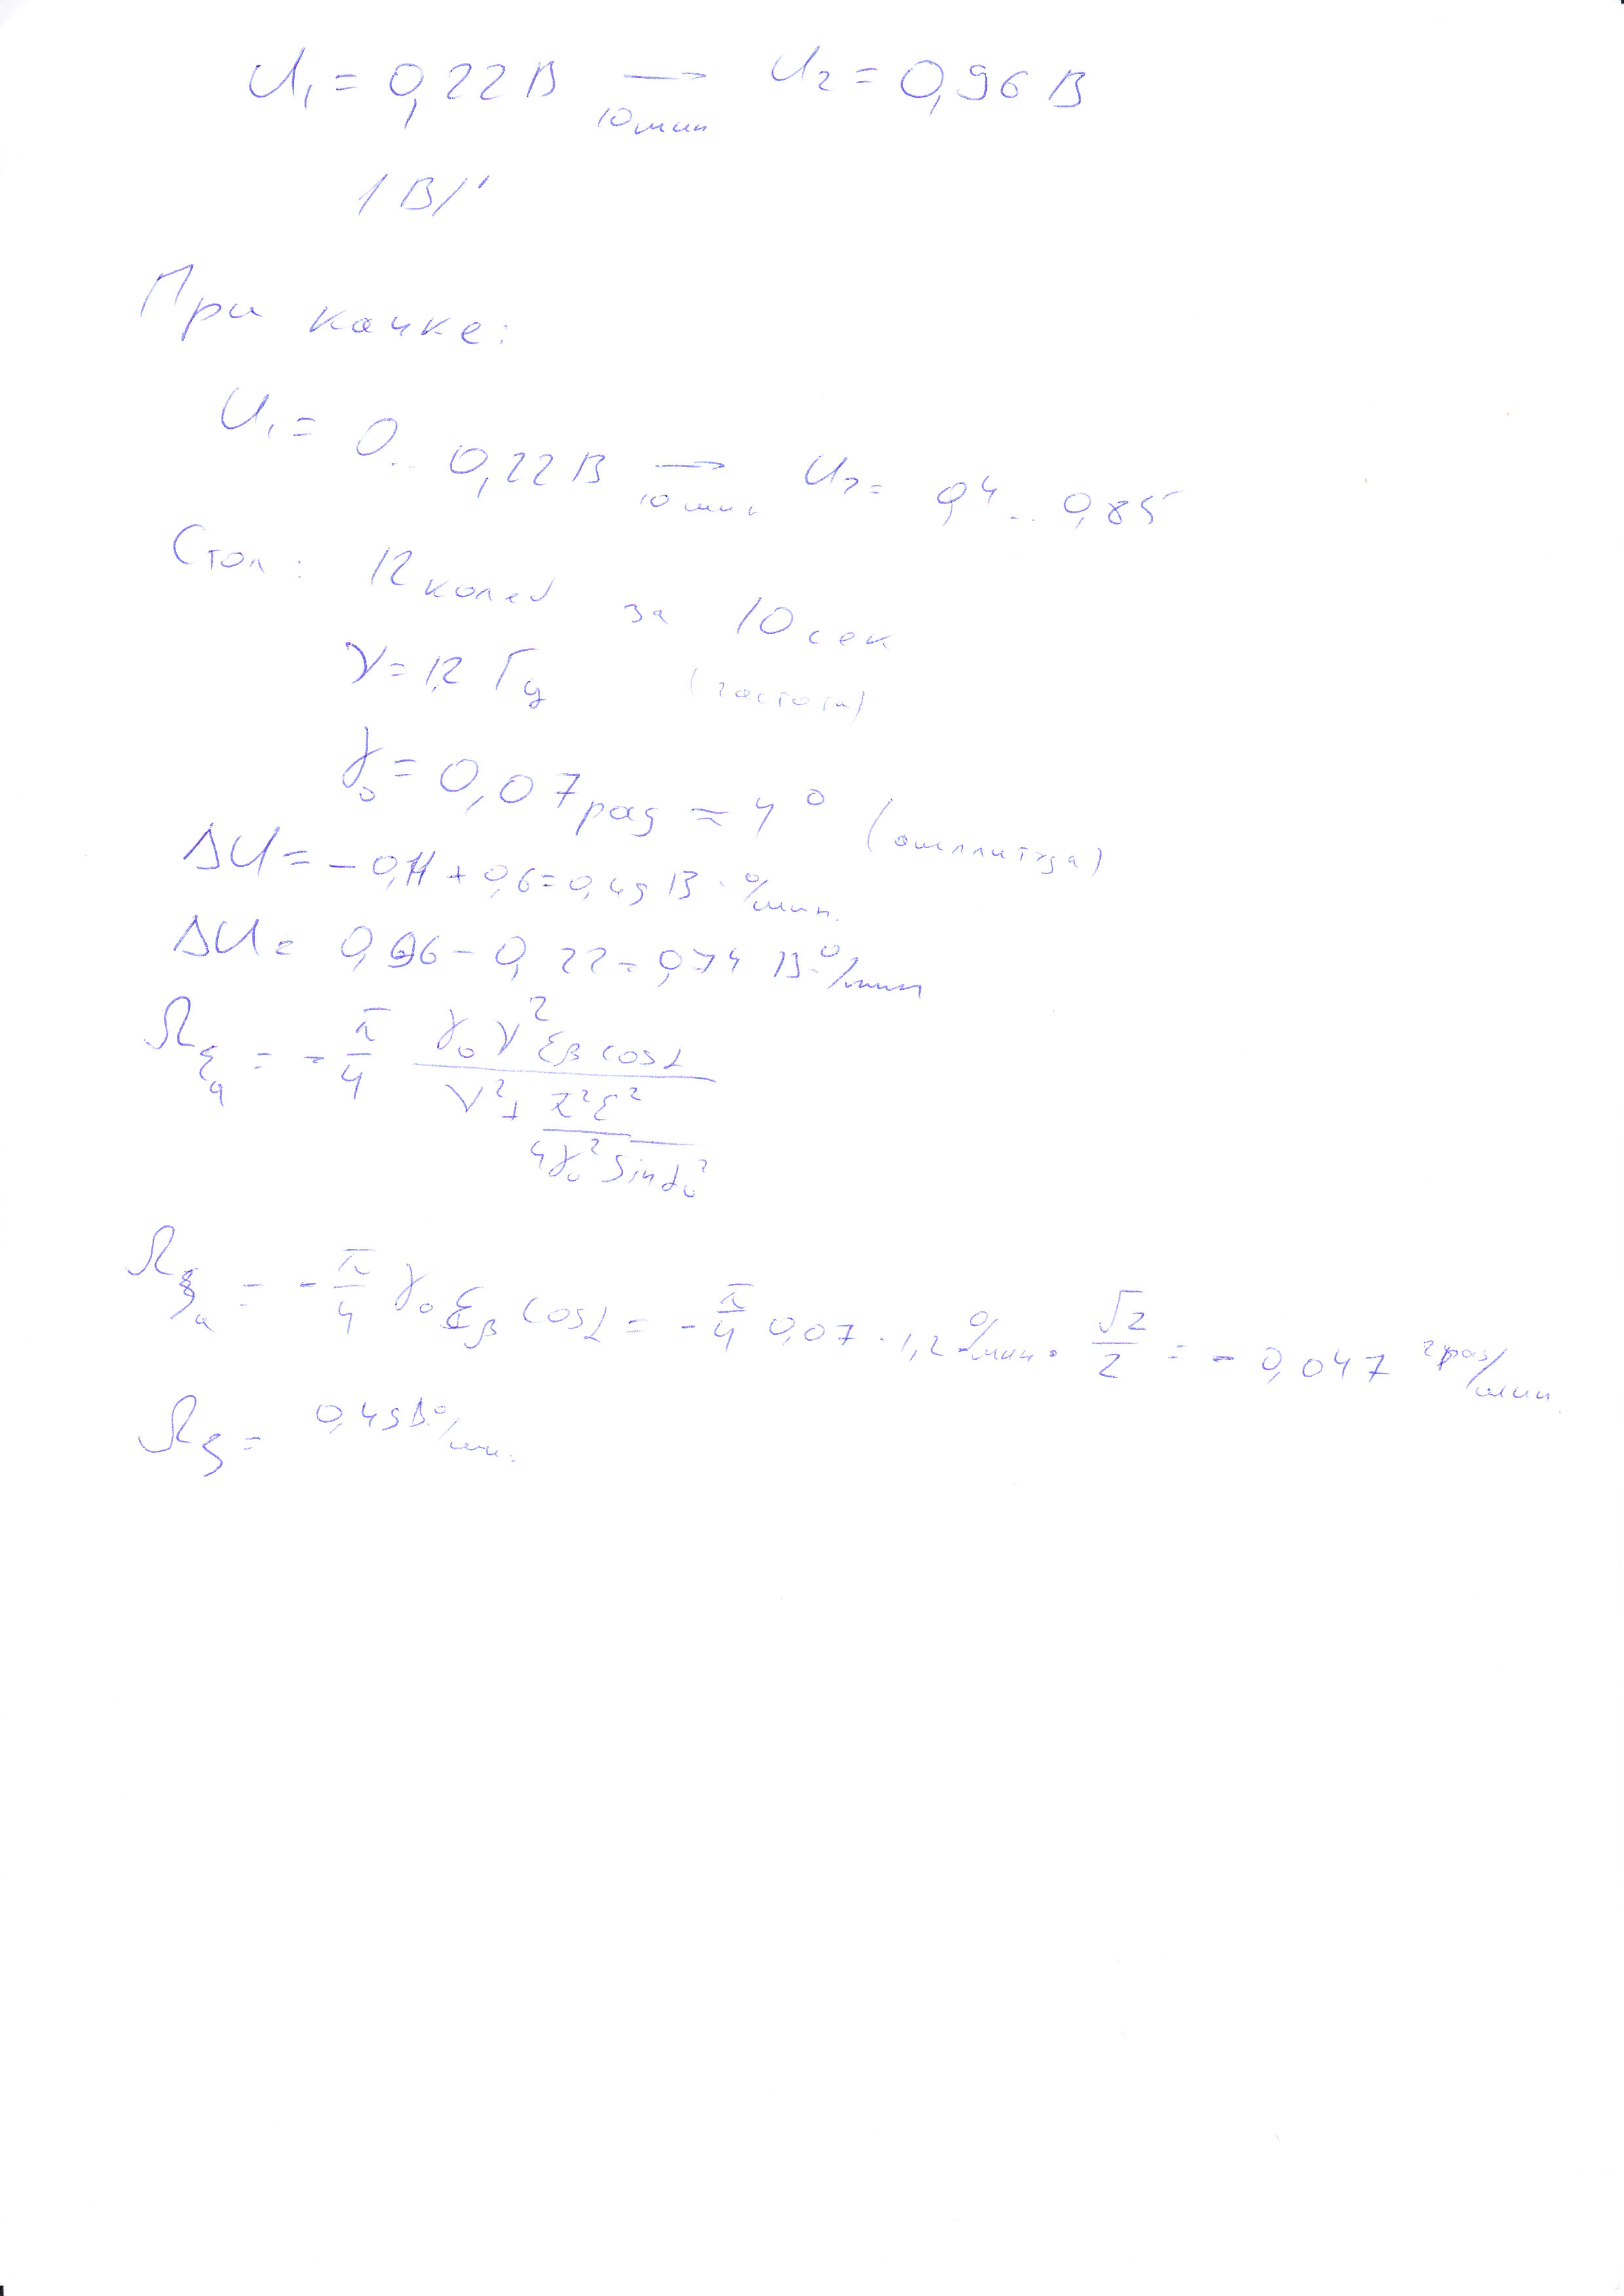 U₁ = 0,22 В → U₂ = 0,96 В
10 мин
1 В/'
При качке:
U₁ = 0.. 0,22 В → U₂ = 0,4 .. 0,85
10 мин
Стол: 12 колеб за 10 сек
ν = 1,2 Гц (частота)
γ₀ = 0,07 рад ≈ 4° (амплитуда)
ΔU = -0,11 + 0,6 = 0,49 В · °/мин.
ΔU = 0,96 - 0,22 = 0,74 В·°/мин
π γ₀ ν² εβ cosα
4 ν² + π²ε²
4γ₀² sinα₀²
= - π/4 γ₀ εβ cosα = - π/4 0,07 · 1,2 °/мин · √2/2 = - 0,047 град/мин.
= 0,49 В·°/мин.